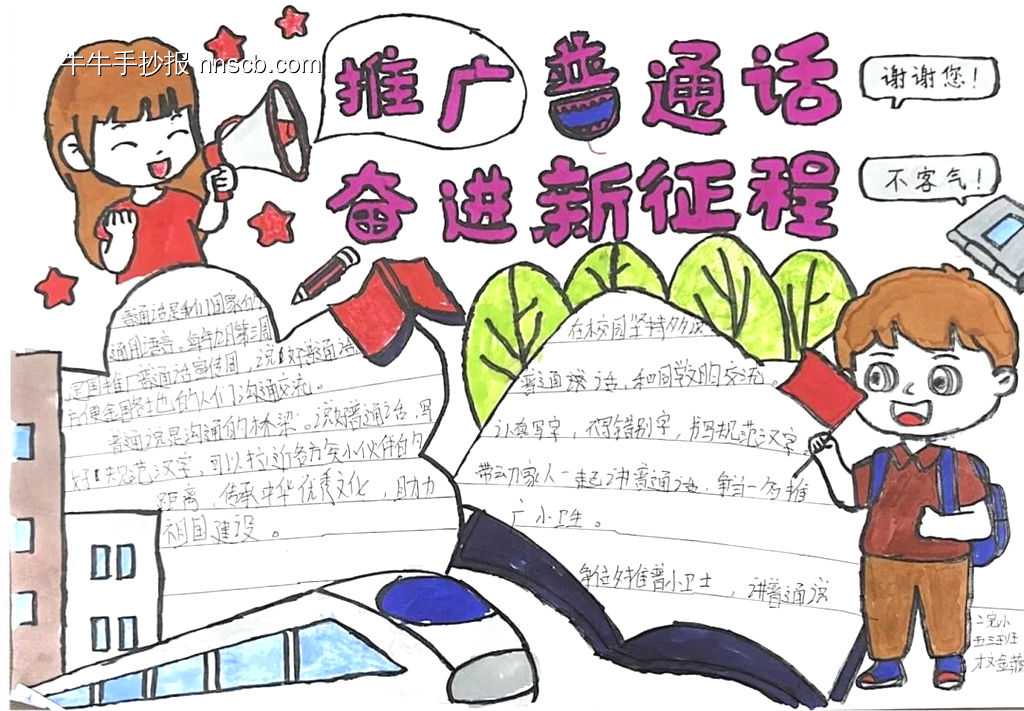 牛牛手抄报 nhscb.com
推广普通话
奋进新征程
谢谢您！
不客气！
普通话是我们国家的
通用语言。每年9月第三周
是国推广普通话宣传周，说好普通话
方便全国各地的人们沟通交流。
普通话是沟通的桥梁。说好普通话，写
好规范汉字，可以拉近各方矣小伙伴的
距离，传承中华优秀文化，助力
祖国建设。
在校园坚持
普通话，和同学朋交流。
认真写字，不写错别字，书写规范汉字。
带动家人一起讲普通话，争当一名推
广小卫生。
争做推普小卫士，讲普通话